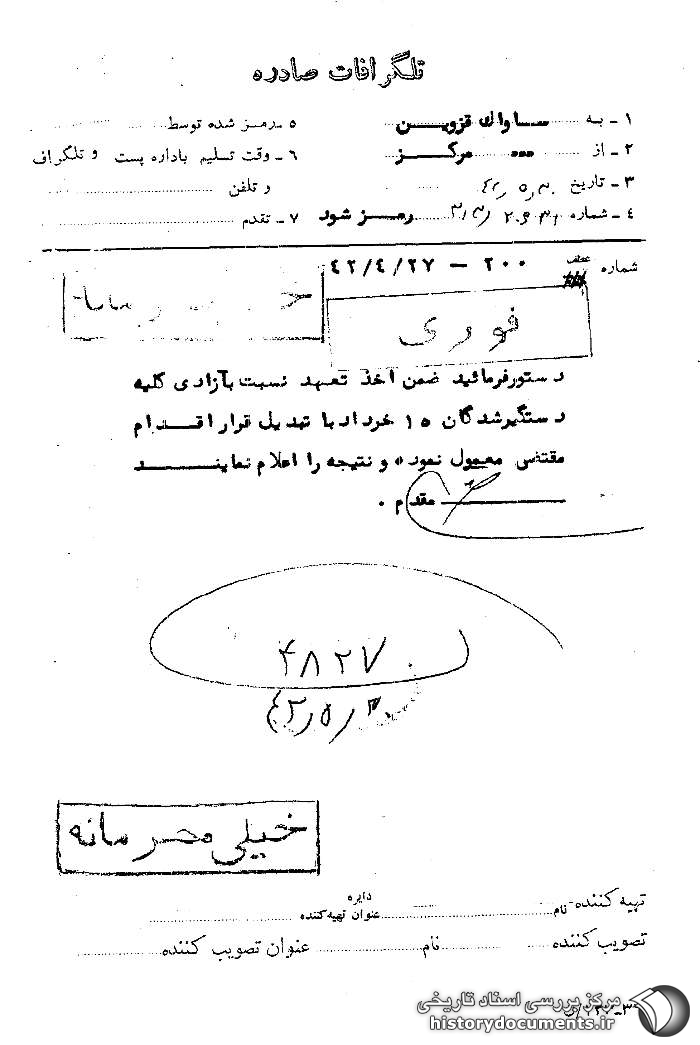 تلگرافات صادره
۱ - به ساواك قزوین
۵ - رمز شده توسط
۲ - از مرکز
۶ - وقت تسلیم باداره پست و تلگراف و تلفن
۳ - تاریخ ۴۲٫۵٫۳۰
۴ - شماره رمز شود
۷ - تقدم
شماره عطف ۲۰۰ - ۴۲/۴/۲۷
فوری
دستورفرمائید ضمن اخذ تعهد نسبت بآزادی کلیه
دستگیرشدگان ۱۵ خرداد با تبدیل قرار اقدام
مقتضی معمول نموده و نتیجه را اعلام نمایند
مقدم .
۴۸۲۷
خیلی محرمانه
تهیه کننده - نام عنوان تهیه کننده دایره
تصویب کننده نام عنوان تصویب کننده
مرکز بررسی اسناد تاریخی
historydocuments.ir